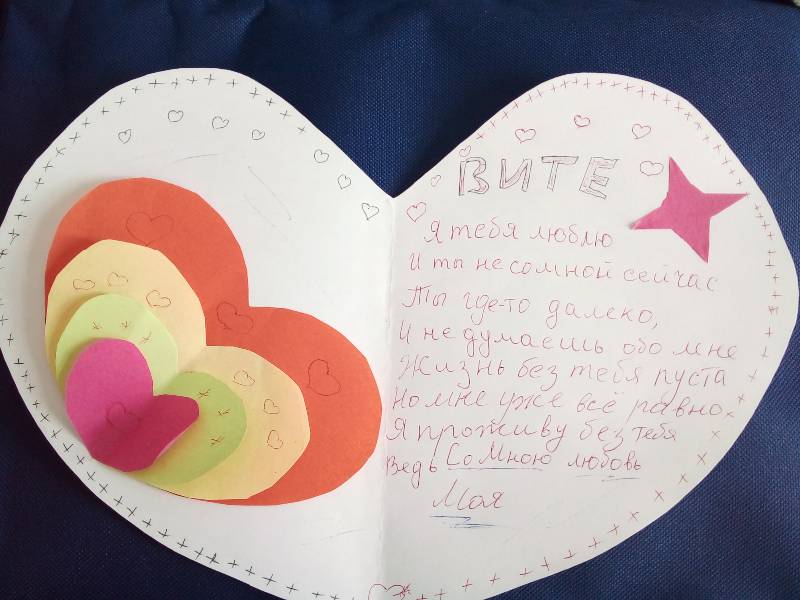 ВИТЕ
Я тебя люблю
И ты не сомной сейчас
Ты где-то далеко,
И не думаешь обо мне
Жизнь без тебя пуста
Но мне уже всё равно,
Я проживу без тебя
Ведь Со Мною любовь
Моя